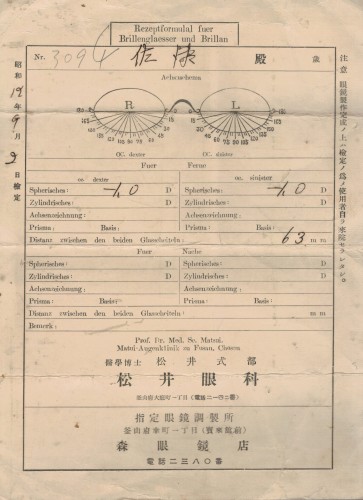 Rezeptformulal fuer
Brillenglaesser und Brillan
Nr. 3094 佐 殿 歳
Achsenchema
R L
OC. dexter OC. sinister
Fuer Ferne
oc. dexter oc. sinister
Sphärisches: -1.0 D Sphärisches: -1.0 D
Zylindrisches: D Zylindrisches: D
Achsenzeichnung: Achsenzeichnung:
Prisma: Basis: Prisma: Basis:
Distanz zwischen den beiden Glasschriteln: 63 m m
Fuer Nache
Sphärisches: D Sphärisches: D
Zylindrisches: D Zylindrisches: D
Achsenzeichnung: Achsenzeichnung:
Prisma: Basis: Prisma: Basis:
Distanz zwischen den beiden Glasschriteln: m m
Bemerk:
Prof. Dr. Med. Sc. Matsui.
Matsui-Augenklinik zu Fusan, Chosen
醫學博士 松井式部
松井眼科
釜山府大廳町一丁目(電話二一〇二番)
指定眼鏡調製所
釜山府幸町一丁目(寶來館前)
森眼鏡店
電話二三八〇番
昭和12年9月2日検定
注意 眼鏡製作完成ノ上ハ檢定ノ爲メ使用者自ラ來院セラレタシ